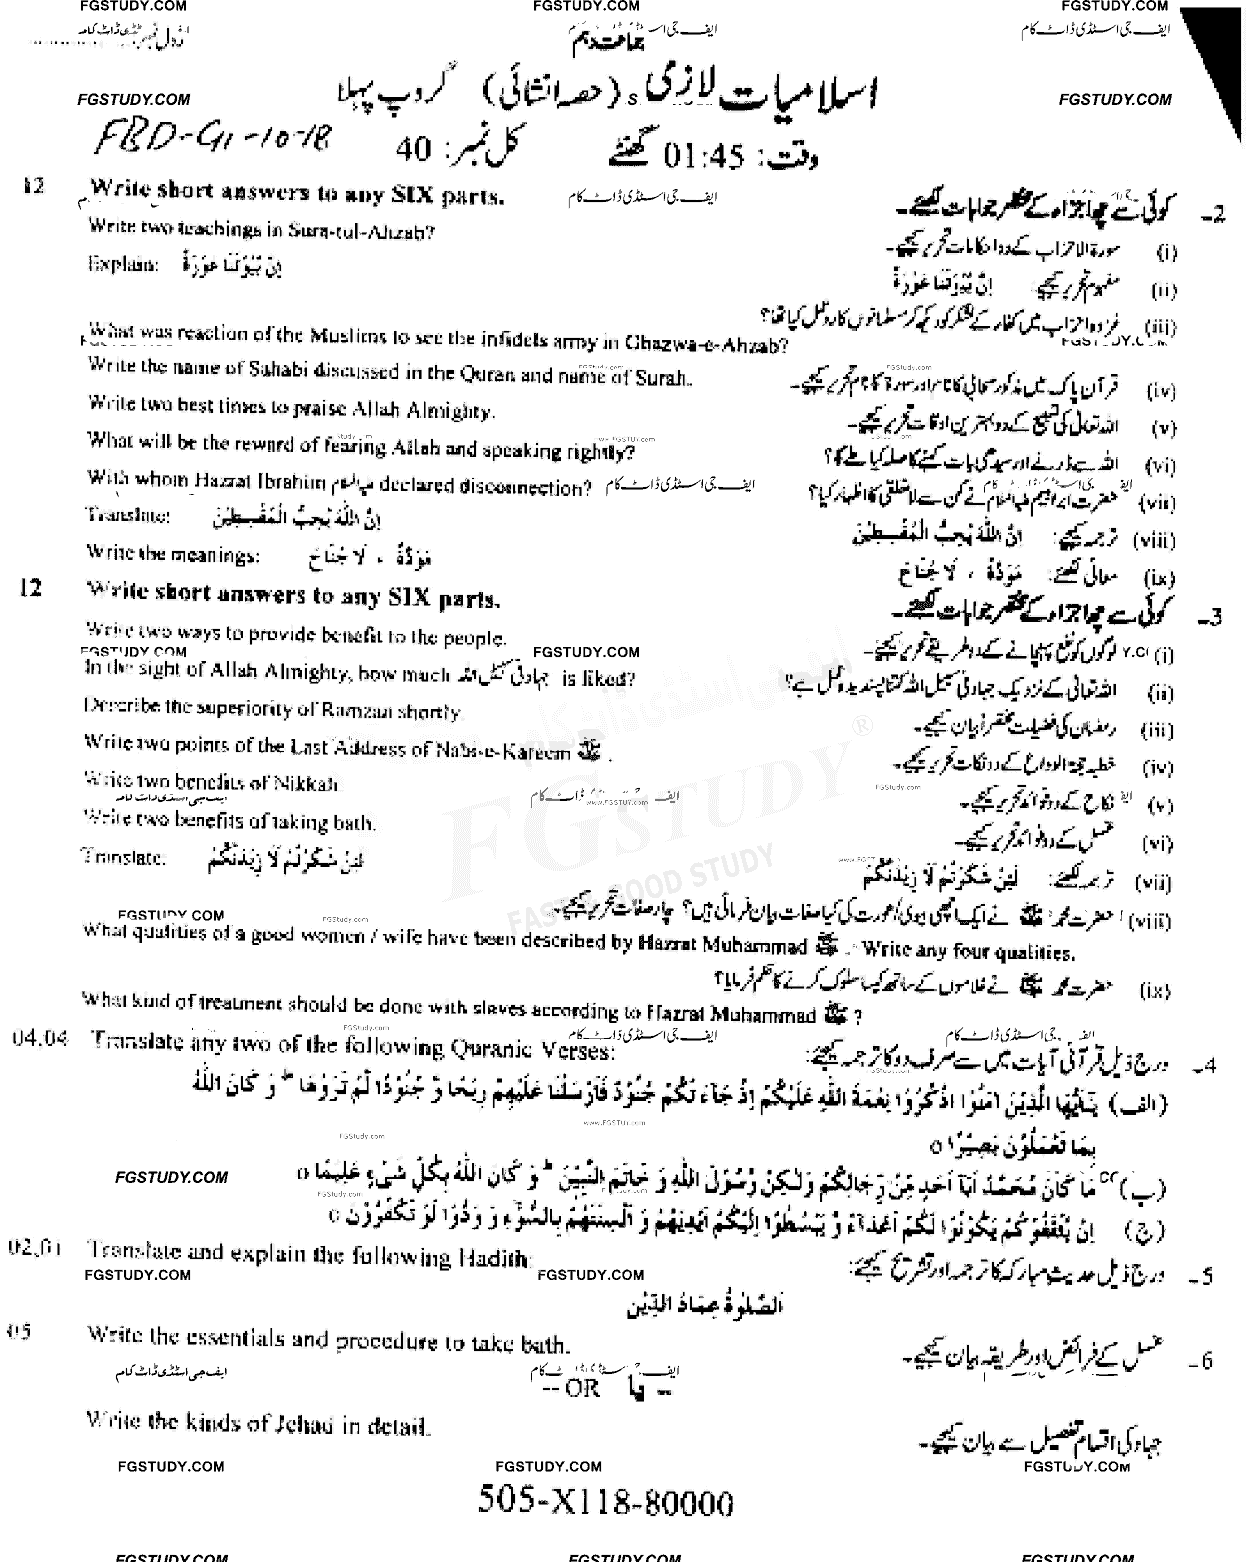 FGSTUDY.COM FGSTUDY.COM FGSTUDY.COM
ایف جی اسٹڈی ڈاٹ کام
جماعت دہم
رول نمبر
اسلامیات لازمی (حصہ انشائی) گروپ پہلا
FGSTUDY.COM FGSTUDY.COM
FBD-G1-10-18
کل نمبر: 40 وقت: 01:45 گھنٹے
12 Write short answers to any SIX parts. ایف جی اسٹڈی ڈاٹ کام
2- کوئی سے چھ اجزاء کے مختصر جوابات لکھئے۔
Write two teachings in Sura-tul-Ahzab?
(i) سورۃ الاحزاب کے دو احکامات تحریر کیجئے۔
Explain: اِنَّ بُيُوْتَنَا عَوْرَةٌ
(ii) مفہوم تحریر کیجئے: اِنَّ بُيُوْتَنَا عَوْرَةٌ
(iii) غزوہ احزاب میں کفار کے لشکر کو دیکھ کر مسلمانوں کا ردعمل کیا تھا؟
What was reaction of the Muslims to see the infidels army in Ghazwa-e-Ahzab?
Write the name of Sahabi discussed in the Quran and name of Surah.
(iv) قرآن پاک میں مذکور صحابی کا نام اور سورۃ کا نام تحریر کیجئے۔
Write two best times to praise Allah Almighty.
(v) اللہ تعالیٰ کی تسبیح کے دو بہترین اوقات تحریر کیجئے۔
What will be the reward of fearing Allah and speaking rightly?
(vi) اللہ سے ڈرنے اور سیدھی بات کہنے کا صلہ کیا ملے گا؟
With whom Hazrat Ibrahim علیہ السلام declared disconnection? ایف جی اسٹڈی ڈاٹ کام
(vii) حضرت ابراہیم علیہ السلام نے کن سے لاتعلقی کا اظہار کیا؟
Translate: اِنَّ اللّٰهَ يُحِبُّ الْمُقْسِطِيْنَ
(viii) ترجمہ کیجئے: اِنَّ اللّٰهَ يُحِبُّ الْمُقْسِطِيْنَ
Write the meanings: مَوَدَّةٌ ، لَا جُنَاحَ
(ix) معانی لکھئے: مَوَدَّةٌ ، لَا جُنَاحَ
12 Write short answers to any SIX parts.
3- کوئی سے چھ اجزاء کے مختصر جوابات لکھئے۔
Write two ways to provide benefit to the people.
(i) لوگوں کو نفع پہنچانے کے دو طریقے تحریر کیجئے۔
FGSTUDY.COM FGSTUDY.COM
In the sight of Allah Almighty, how much جہاد فی سبیل اللہ is liked?
(ii) اللہ تعالیٰ کے نزدیک جہاد فی سبیل اللہ کتنا پسندیدہ عمل ہے؟
Describe the superiority of Ramzan shortly.
(iii) رمضان کی فضیلت مختصراً بیان کیجئے۔
Write two points of the Last Address of Nabi-e-Kareem ﷺ .
(iv) خطبہ حجۃ الوداع کے دو نکات تحریر کیجئے۔
Write two benefits of Nikkah
(v) نکاح کے دو فوائد تحریر کیجئے۔
Write two benefits of taking bath.
(vi) غسل کے دو فوائد تحریر کیجئے۔
Translate: لَئِنْ شَكَرْتُمْ لَاَ زِيْدَنَّكُمْ
(vii) ترجمہ لکھئے: لَئِنْ شَكَرْتُمْ لَاَ زِيْدَنَّكُمْ
(viii) حضرت محمد ﷺ نے ایک اچھی بیوی/عورت کی کیا صفات بیان فرمائی ہیں؟ چار صفات تحریر کیجئے۔
FGSTUDY.COM
What qualities of a good women / wife have been described by Hazrat Muhammad ﷺ . Write any four qualities.
(ix) حضرت محمد ﷺ نے غلاموں کے ساتھ کیسا سلوک کرنے کا حکم فرمایا؟
What kind of treatment should be done with slaves according to Hazrat Muhammad ﷺ ?
04,04 Translate any two of the following Quranic Verses:
4- درج ذیل قرآنی آیات میں سے صرف دو کا ترجمہ کیجئے:
(الف) يٰٓاَيُّهَا الَّذِيْنَ اٰمَنُوا اذْكُرُوْا نِعْمَةَ اللّٰهِ عَلَيْكُمْ اِذْ جَآءَ تْكُمْ جُنُوْدٌ فَاَرْسَلْنَا عَلَيْهِمْ رِيْحًا وَّ جُنُوْدًا لَّمْ تَرَوْهَا ؕ وَ كَانَ اللّٰهُ
بِمَا تَعْمَلُوْنَ بَصِيْرًا o
FGSTUDY.COM
(ب) مَا كَانَ مُحَمَّدٌ اَبَآ اَحَدٍ مِّنْ رِّجَالِكُمْ وَلٰكِنْ رَّسُوْلَ اللّٰهِ وَ خَاتَمَ النَّبِيّٖنَ ؕ وَ كَانَ اللّٰهُ بِكُلِّ شَیْءٍ عَلِيْمًا o
(ج) اِنْ يَّثْقَفُوْ كُمْ يَكُوْنُوْا لَكُمْ اَعْدَآءً وَّ يَبْسُطُوْٓا اِلَيْكُمْ اَيْدِيَهُمْ وَ اَلْسِنَتَهُمْ بِالسُّوْٓءِ وَ وَدُّوْا لَوْ تَكْفُرُوْنَ o
02,01 Translate and explain the following Hadith:
5- درج ذیل حدیث مبارکہ کا ترجمہ اور تشریح کیجئے:
FGSTUDY.COM FGSTUDY.COM
اَلصَّلٰوةُ عِمَادُ الدِّيْنِ
05 Write the essentials and procedure to take bath.
6- غسل کے فرائض اور طریقہ بیان کیجئے۔
ایف جی اسٹڈی ڈاٹ کام
-- OR یا --
Write the kinds of Jehad in detail.
جہاد کی اقسام تفصیل سے بیان کیجئے۔
FGSTUDY.COM FGSTUDY.COM FGSTUDY.COM
505-X118-80000
FGSTUDY.COM FGSTUDY.COM FGSTUDY.COM